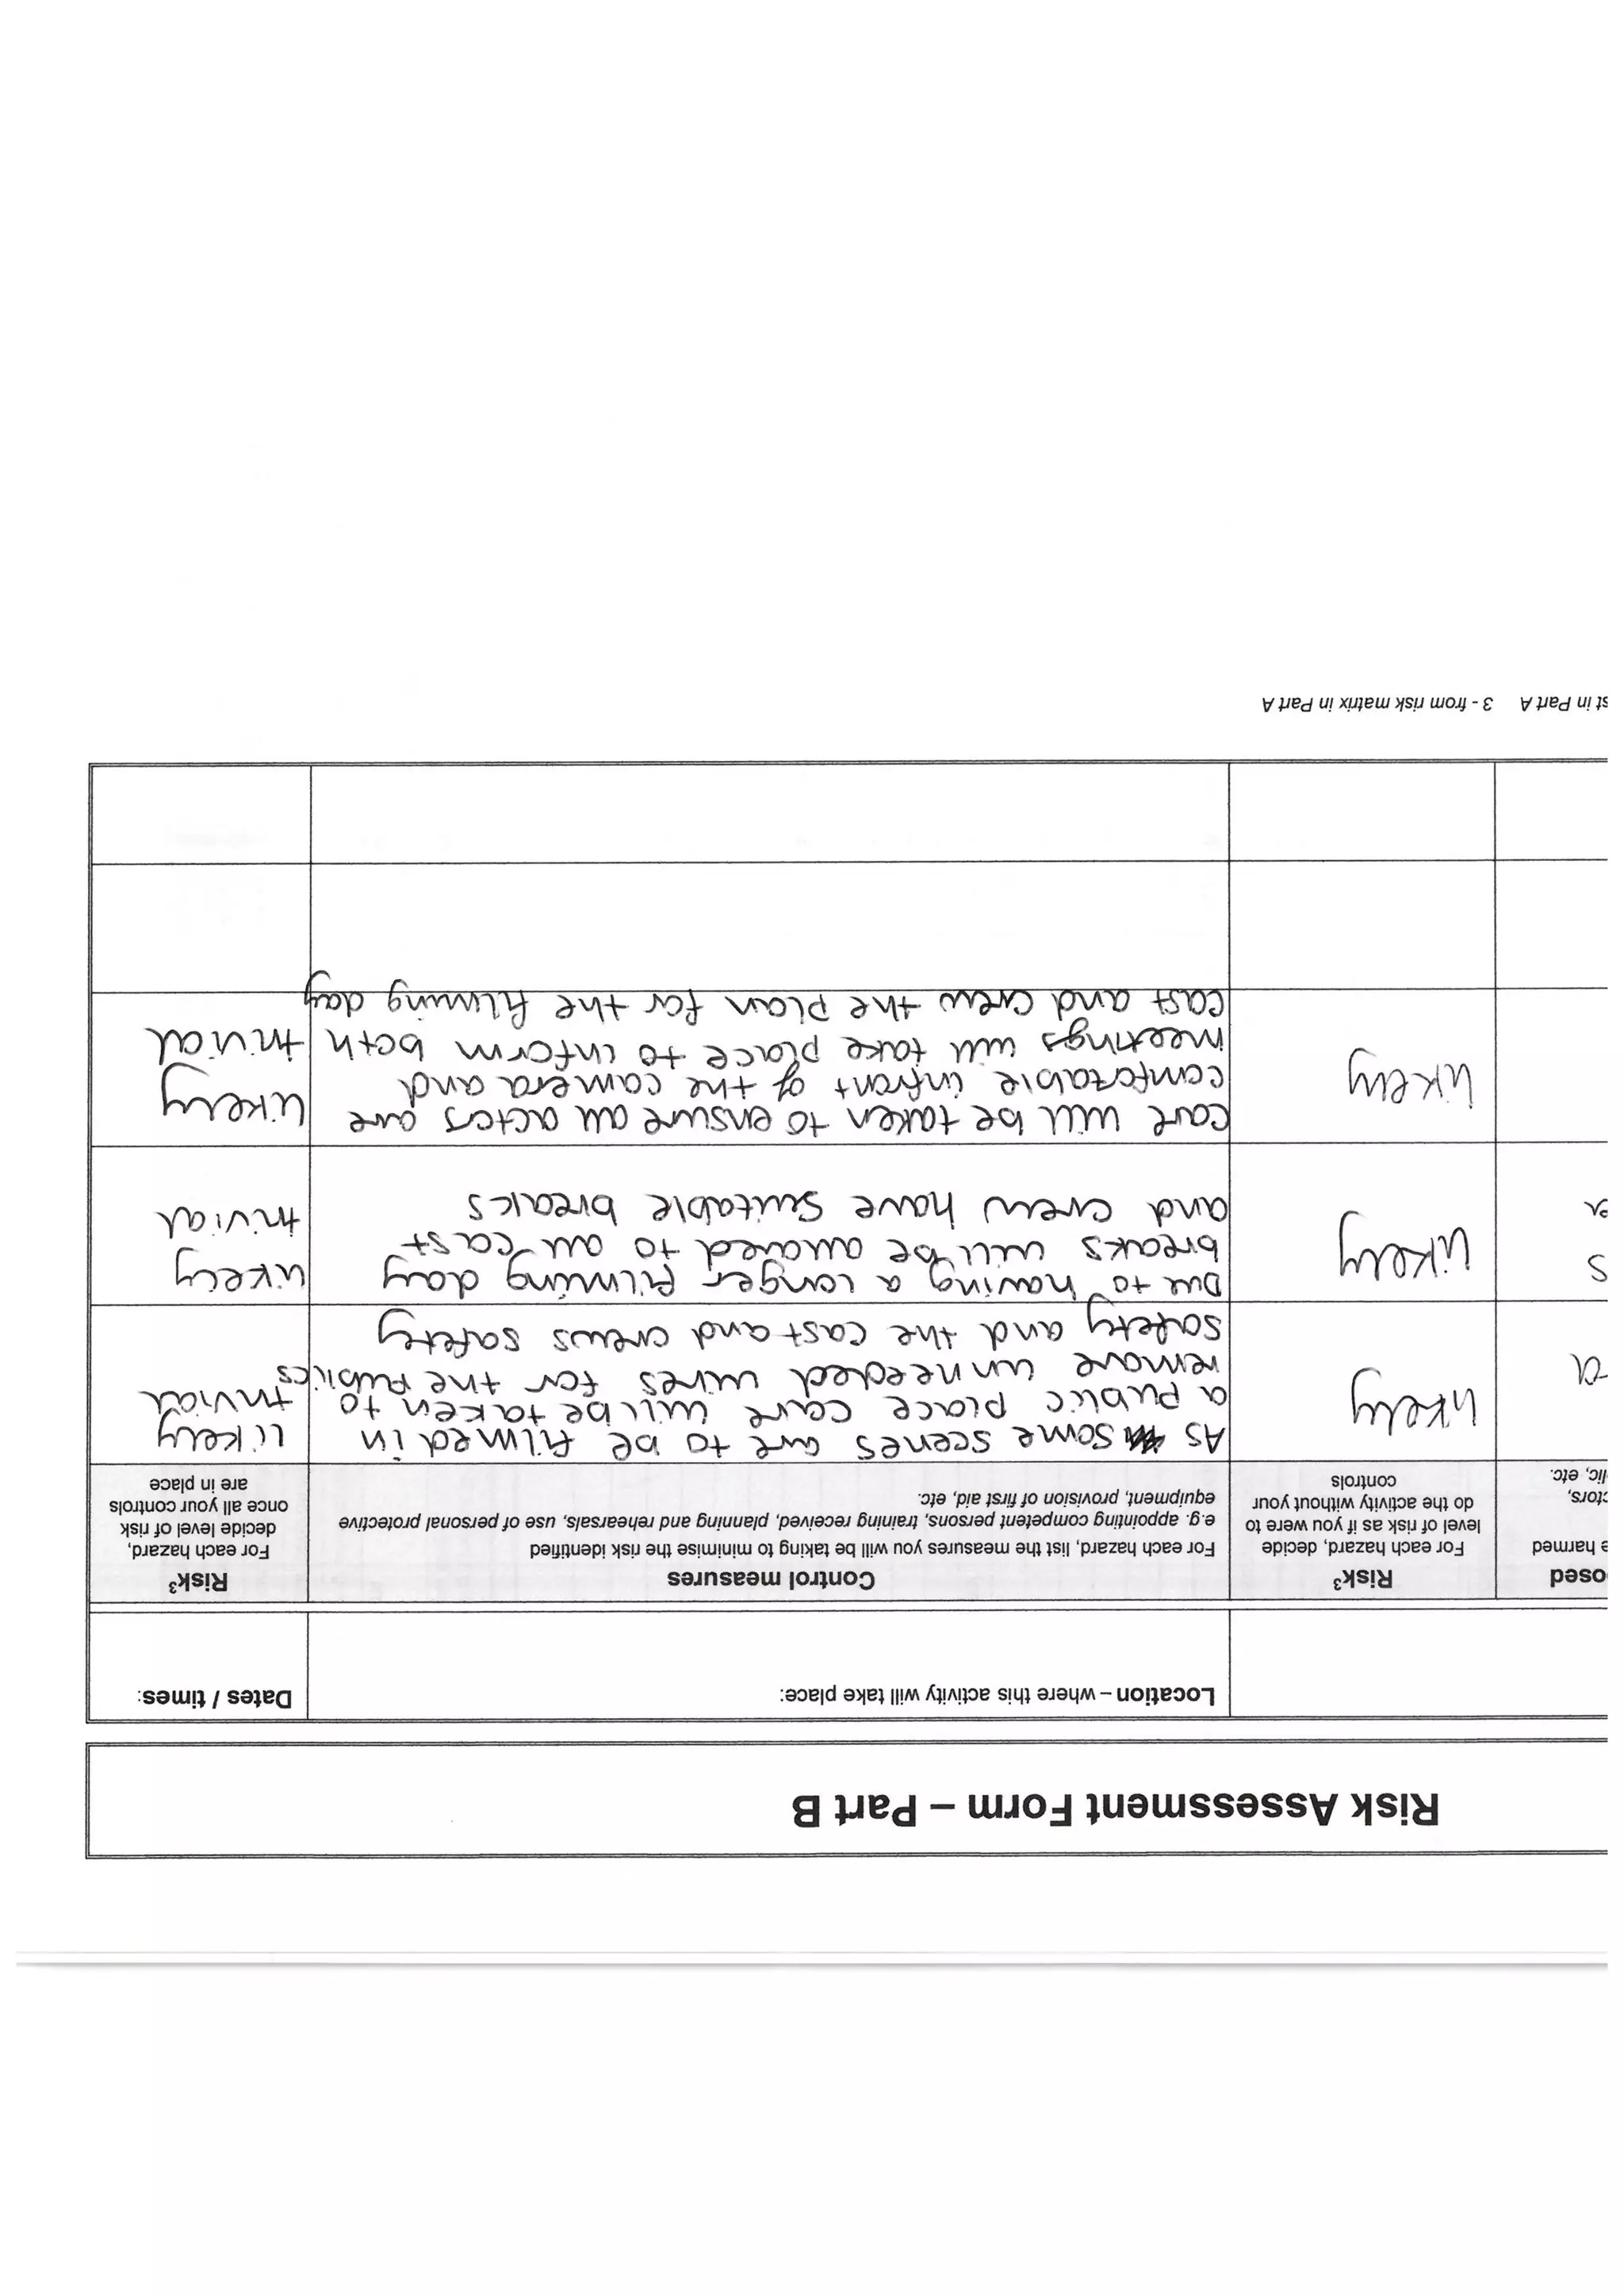 Risk Assessment Form – Part B
Location – where this activity will take place:
Dates / times:
osed
e harmed
ctors,
lic, etc.
Risk³
For each hazard, decide
level of risk as if you were to
do the activity without your
controls
Control measures
For each hazard, list the measures you will be taking to minimise the risk identified
e.g. appointing competent persons, training received, planning and rehearsals, use of personal protective
equipment, provision of first aid, etc.
Risk³
For each hazard,
decide level of risk
once all your controls
are in place
likely
As some scenes are to be filmed in
a public place care will be taken to
remove unneeded wires for the publics
safety and the cast and crews safety
likely
trivial
s
likely
Due to having a longer filming day
breaks will be allowed to all cast
and crew have suitable breaks
likely
trivial
likely
care will be taken to ensure all actors are
comfortable infront of the camera and
meetings will take place to inform both
cast and crew the plan for the filming day
likely
trivial
st in Part A 3 - from risk matrix in Part A